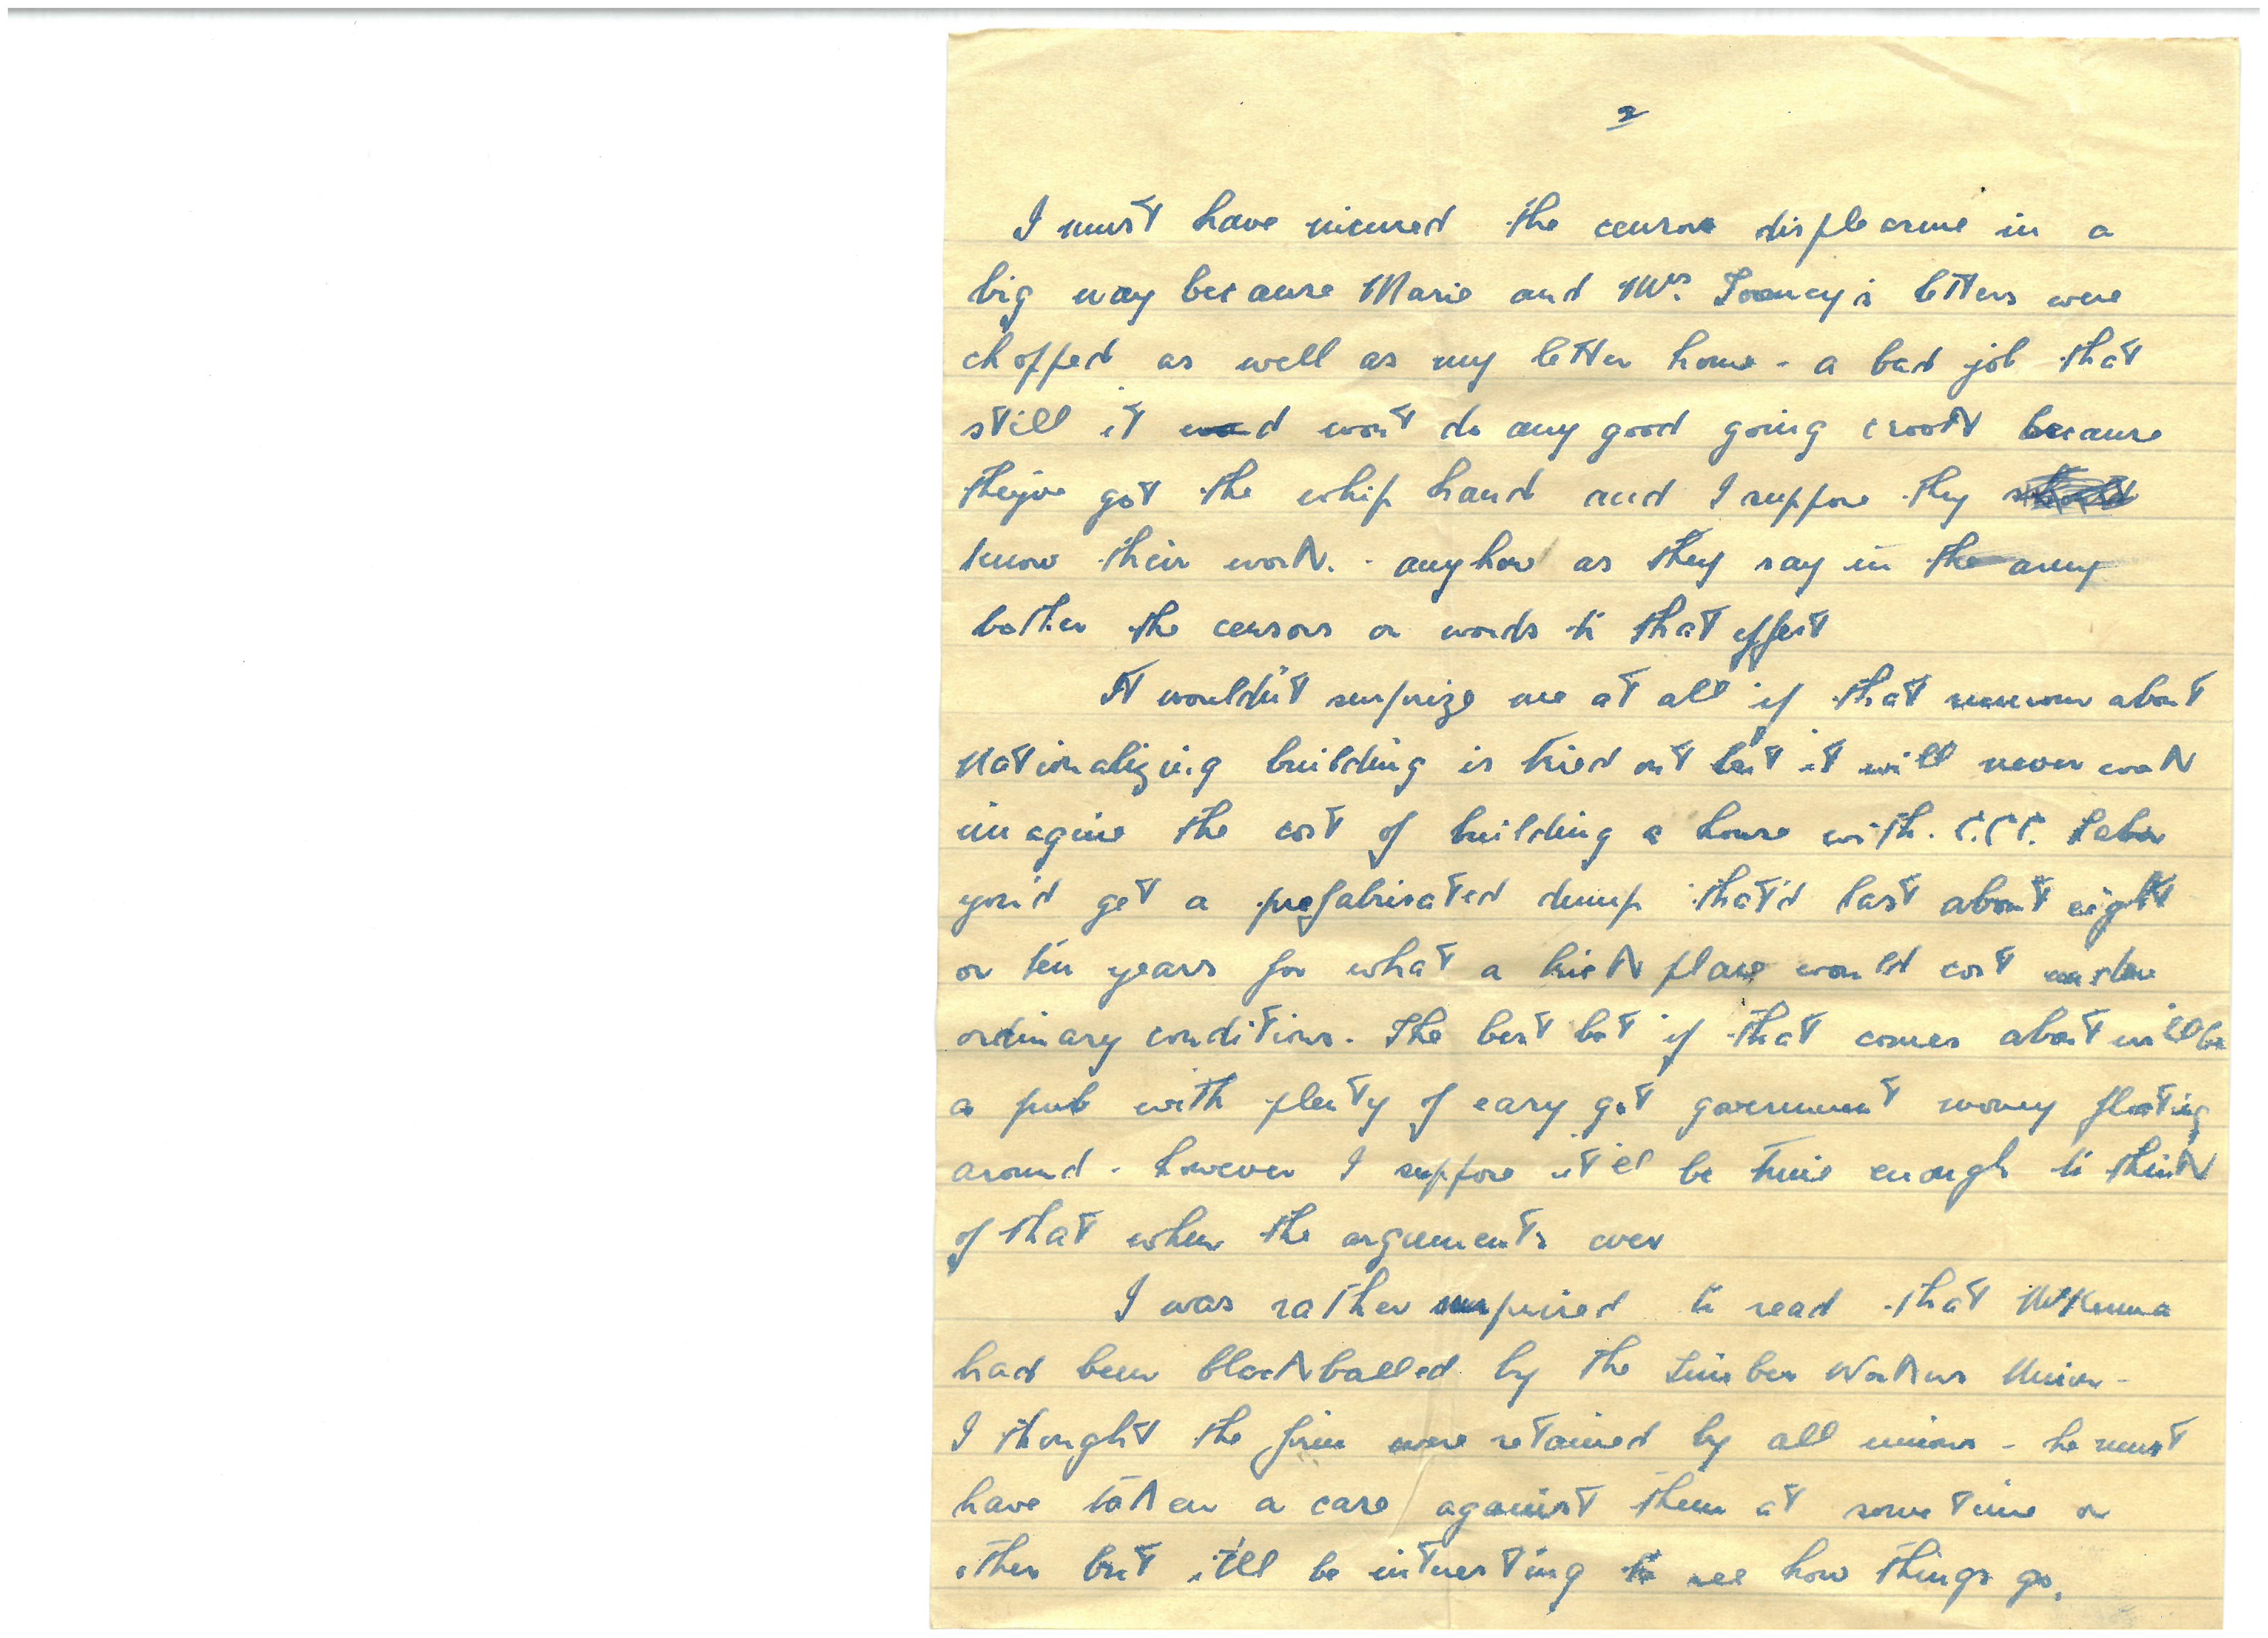 2
I must have incured the censors displeasure in a
big way because Marie and Mrs. Toomey's letters were
chopped as well as my letter home - a bad job that
still it won't do any good going crook because
they've got the whip hand and I suppose they
know their work. - anyhow as they say in the army
bother the censors or words to that effect
It wouldn't surprize me at all if that rumour about
nationalizing building is tried out but it will never work
imagine the cost of building a house with. C.C.C. labor
you'd get a prefabricated dump that'd last about eight
or ten years for what a brick place would cost under
ordinary conditions. The best bet if that comes about will be
a pub with plenty of easy got government money floating
around - however I suppose it'll be time enough to think
of that when the arguments over
I was rather surprised to read that McKenna
had been blackballed by the Timber Workers Union -
I thought the firm were retained by all unions - he must
have taken a case against them at some time or
other but it'll be interesting to see how things go.